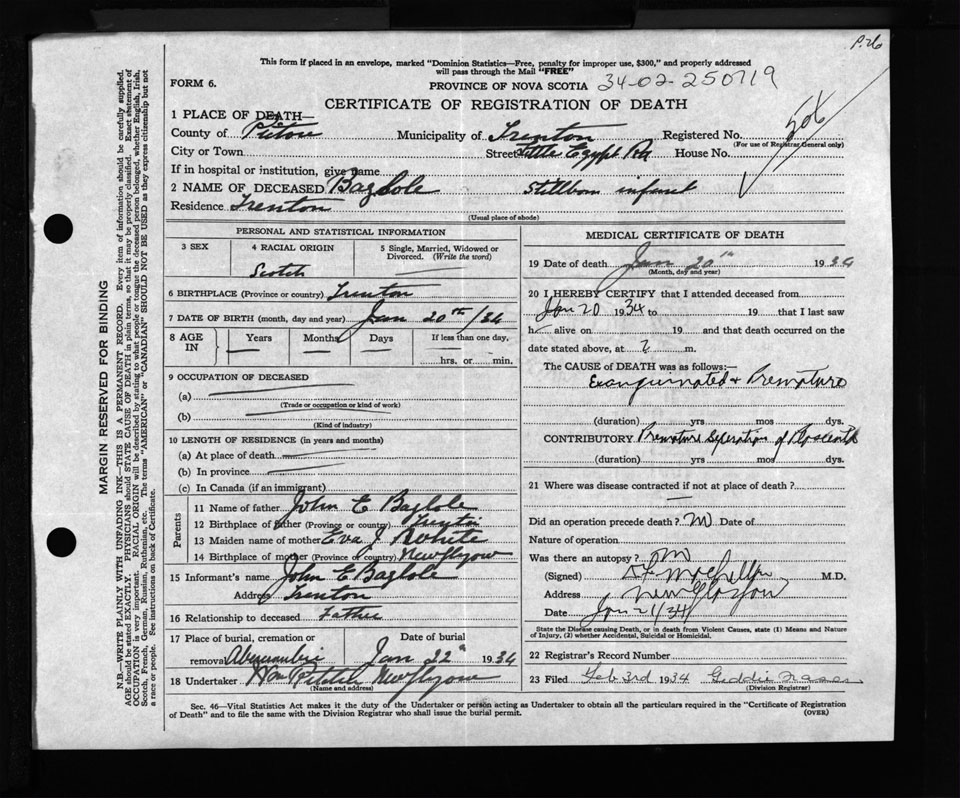 P.26
This form if placed in an envelope, marked "Dominion Statistics—Free, penalty for improper use, $300," and properly addressed
will pass through the Mail "FREE"
FORM 6.
PROVINCE OF NOVA SCOTIA 34-02-250719
CERTIFICATE OF REGISTRATION OF DEATH
1 PLACE OF DEATH—
County of Pictou Municipality of Trenton Registered No. 506
(For use of Registrar General only)
City or Town Street Little Egypt Rd House No.
If in hospital or institution, give name
2 NAME OF DECEASED Baglole Stillborn infant
Residence Trenton
(Usual place of abode)
PERSONAL AND STATISTICAL INFORMATION
3 SEX 4 RACIAL ORIGIN 5 Single, Married, Widowed or Divorced. (Write the word)
Scotch
6 BIRTHPLACE (Province or country) Trenton
7 DATE OF BIRTH (month, day and year) Jan 20th/34
8 AGE IN Years Months Days If less than one day,
hrs. or min.
9 OCCUPATION OF DECEASED
(a)
(Trade or occupation or kind of work)
(b)
(Kind of industry)
10 LENGTH OF RESIDENCE (in years and months)
(a) At place of death
(b) In province
(c) In Canada (if an immigrant)
Parents
11 Name of father John E Baglole
12 Birthplace of father (Province or country) Trenton
13 Maiden name of mother Eva J White
14 Birthplace of mother (Province or country) New Glasgow
15 Informant's name John E Baglole
Address Trenton
16 Relationship to deceased Father
17 Place of burial, cremation or removal Date of burial
Jan 22nd 1934
18 Undertaker New Glasgow
(Name and address)
MEDICAL CERTIFICATE OF DEATH
19 Date of death Jan 20th 1934
(Month, day and year)
20 I HEREBY CERTIFY that I attended deceased from
Jan 20 1934 to 19 that I last saw
h alive on 19 and that death occurred on
date stated above, at ? m.
The CAUSE OF DEATH was as follows:—
Exanguinated + Premature
(duration) yrs mos dys.
CONTRIBUTORY Premature Seperation of Placenta
(duration) yrs mos dys.
21 Where was disease contracted if not at place of death?
Did an operation precede death? no Date of
Nature of operation
Was there an autopsy? no
(Signed) M.D.
Address New Glasgow
Date Jan 21/34
State the Disease causing Death, or in death from Violent Causes, state (1) Means and Nature
of Injury, (2) whether Accidental, Suicidal or Homicidal.
22 Registrar's Record Number
23 Filed Feb 3rd 1934 Fraser
(Division Registrar)
Sec. 46—Vital Statistics Act makes it the duty of the Undertaker or person acting as Undertaker to obtain all the particulars required in the "Certificate of Registration
of Death" and to file the same with the Division Registrar who shall issue the burial permit. (OVER)
MARGIN RESERVED FOR BINDING
N.B.—WRITE PLAINLY WITH UNFADING INK—THIS IS A PERMANENT RECORD. Every item of information should be carefully supplied.
AGE should be stated EXACTLY. PHYSICIANS should STATE CAUSE OF DEATH in plain terms, so that it may be properly classified. Exact statement of
OCCUPATION is very important. RACIAL ORIGIN will be described by stating to what people or tongue the deceased person belonged, whether English, Irish,
Scotch, French, German, Russian, Ruthenian, etc. The terms "AMERICAN" or "CANADIAN" SHOULD NOT BE USED as they express citizenship but not
a race or people. See instructions on back of Certificate.